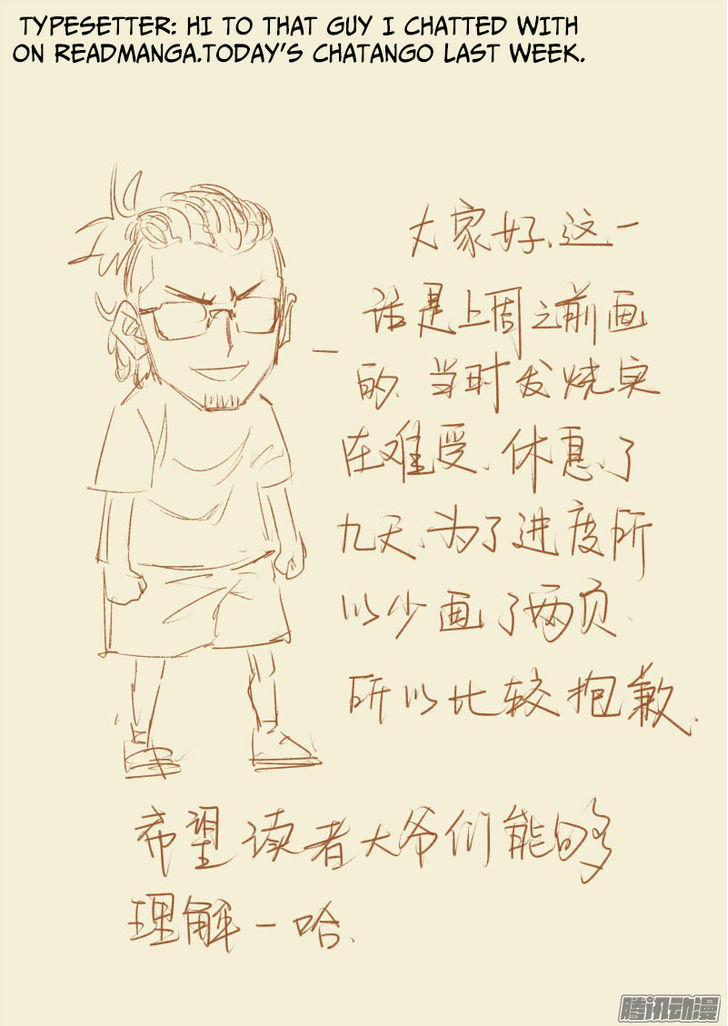 TYPESETTER: HI TO THAT GUY I CHATTED WITH
ON READMANGA.TODAY'S CHATANGO LAST WEEK.
大家好、这一
话是上周之前画
的、当时发烧实
在难受、休息了
九天、为了进度所
以少画了两页、
所以比较抱歉、
希望读者大爷们能够
理解一哈、
腾讯动漫